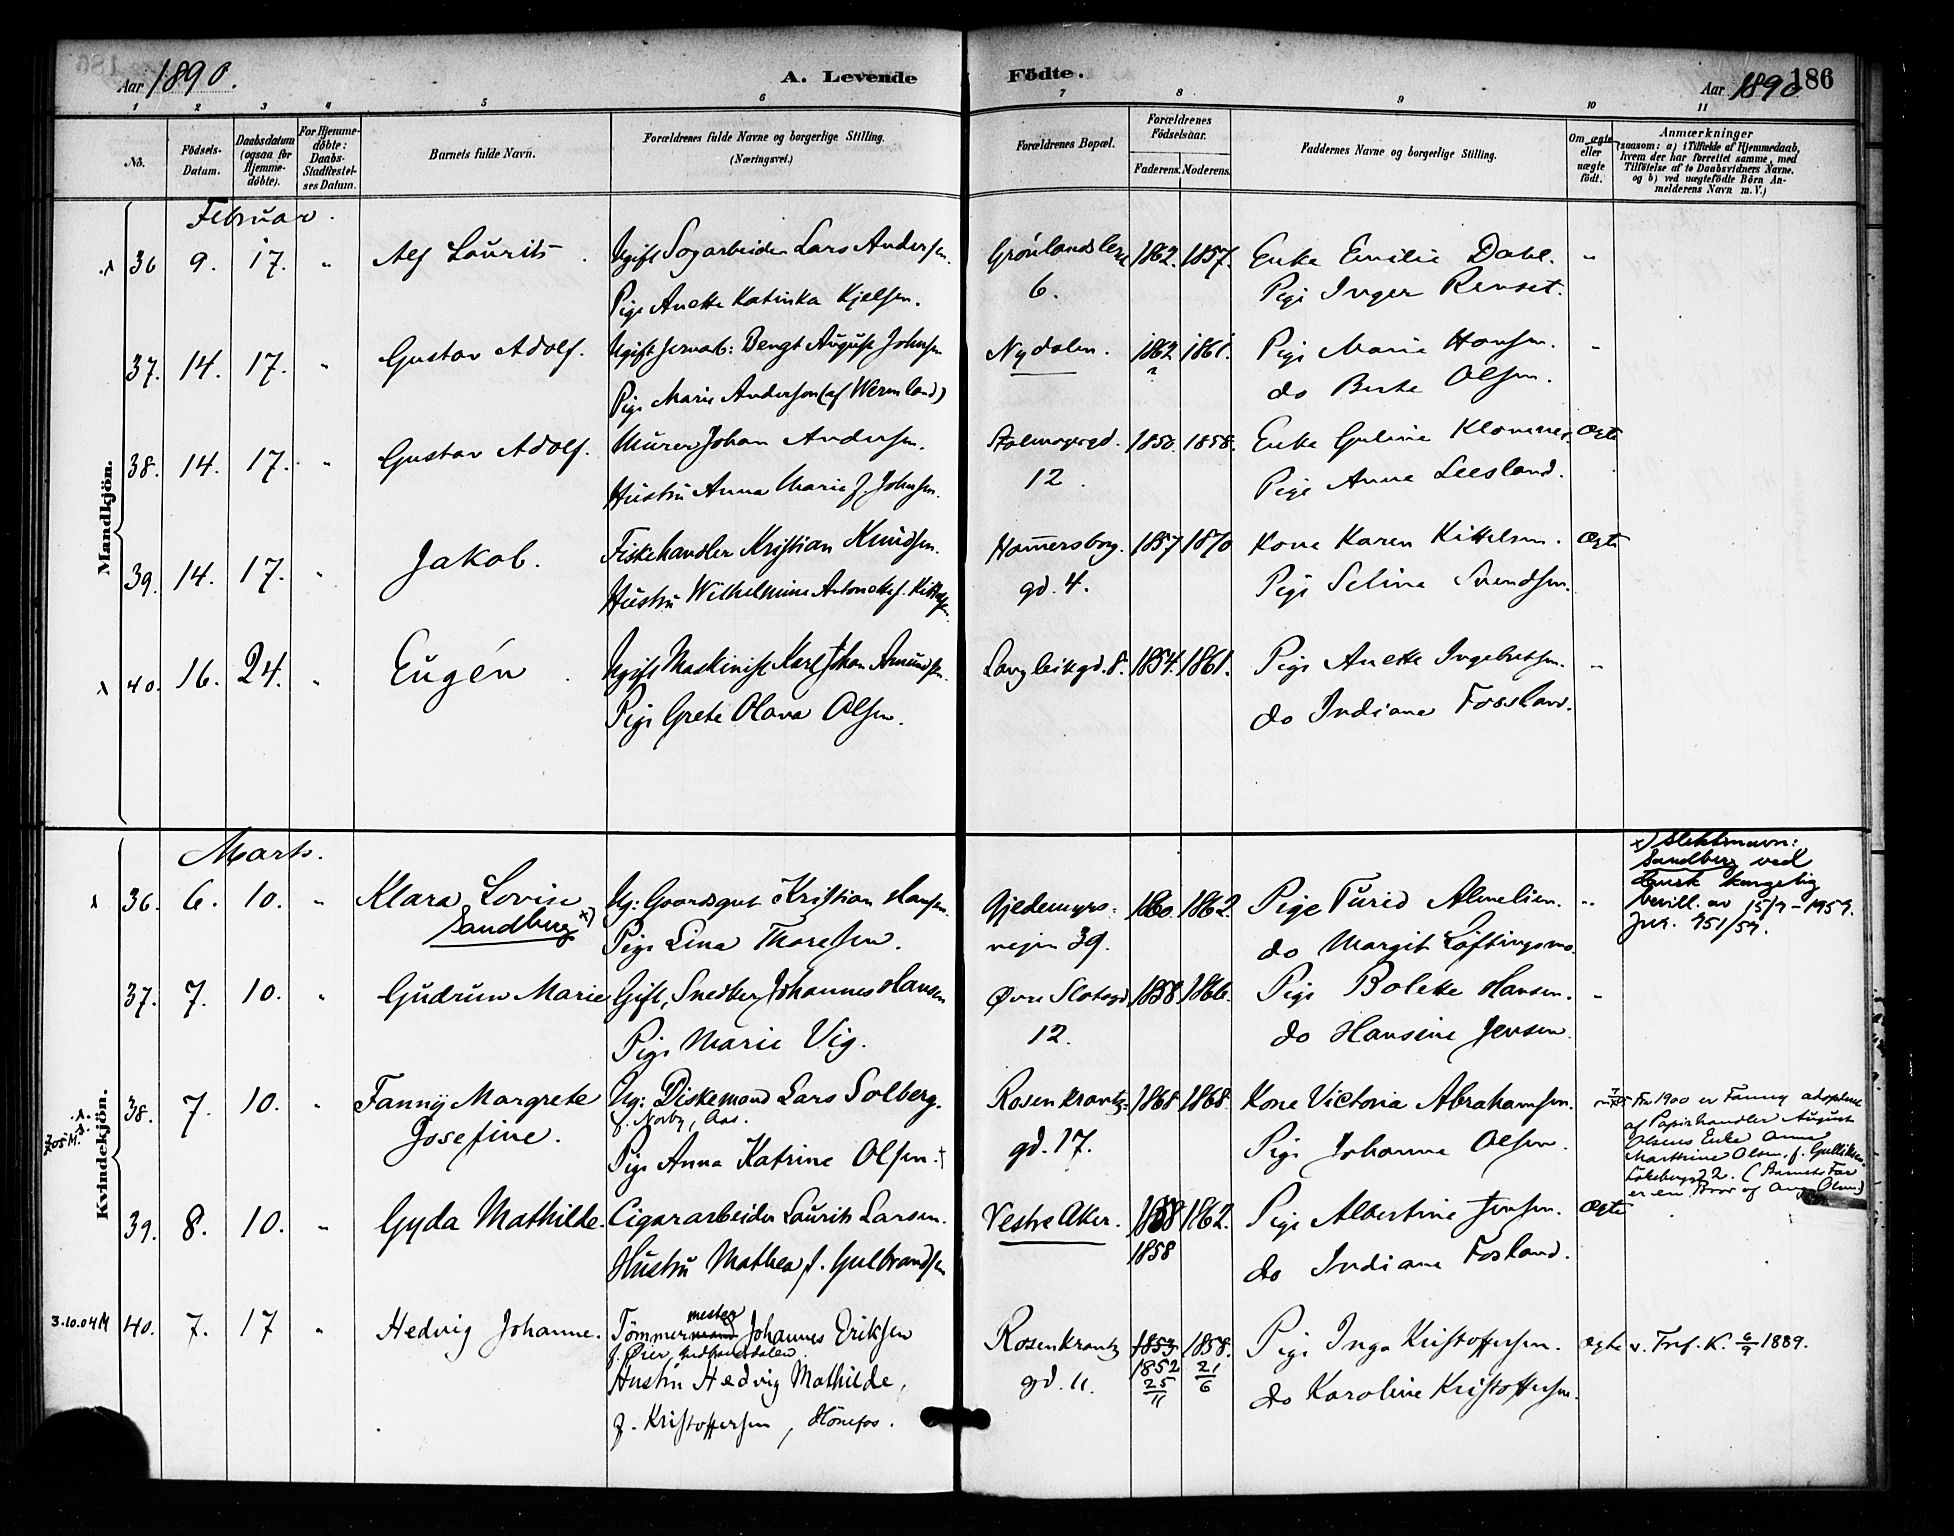 Aar 1890.
A. Levende Födte.
Aar 1890
186
1 2 3 4 5 6 7 8 9 10 11
No.
Födsels-Datum.
Daabsdatum (ogsaa for Hjemme-döbte).
For Hjemme-döbte: Daabs-Stadfæstel-ses Datum.
Barnets fulde Navn.
Forældrenes fulde Navne og borgerlige Stilling. (Næringsvei.)
Forældrenes Bopæl.
Forældrenes Födselsaar.
Faderens. Moderens.
Faddernes Navne og borgerlige Stilling.
Om ægte eller uægte födt.
Anmærkninger
(saasom: a) i Tilfælde af Hjemmedaab, hvem der har forrettet samme, med Tilföielse af to Daabsvidners Navne, og b) ved uægtefödte Börn An-melderens Navn m. V.)
Mandkjön.
Februar.
36 9. 17. " Alf Laurits. Ugift Sagarbeider Lars Andersen. Grønlandsleret 1862. 1857. Enke Emilie Dahl. "
Pige Anette Katinka Kjelsen. 6. Pige Inger Renset.
37. 14. 17. " Gustav Adolf. Ugift Jernarb: Bengt August Johnsen Nydalen. 1862 1861. Pige Marie Hansen. "
Pige Marie Anderson (af Wermland) ? do Berte Olsen.
38. 14. 17. " Gustav Adolf. Murer Johan Andersen. 12 1850. 1858. Enke Guline Ægte
Hustru Anna Marie f. Johnsen. Pige Anna
39. 14. 17. " Jakob. Fiskehandler Kristian Knudsen. Hammersborg. 1857 1870 Kone Karen Kittelsen. Ægte
Hustru Wilhelmine Antonette f. Kittelsen. gd. 4. Pige Seline Svendsen.
40. 16. 24. " Eugén. Ugift Maskinist Karl Johan Amundsen. Langleikgd. 8. 1854. 1861. Pige Anette Ingebretsen. "
Pige Grete Olava Olsen. do Indiane Fossland.
Kvindekjön.
Marts.
36. 6. 10. " Klara Lovise Ug: Gaardsgut Kristian Hansen. Gjedemyrs- 1860. 1862. Pige Turid Almelien. "
Sandberg x) Pige Lina Thoresen. vejen 39. do Margit Løftingsmo.
x) Slektsnavn:
Sandberg ved
kongelig
bevill. av 15/9-1959.
Jnr. 951/59.
37. 7. 10. " Gudrun Marie Gift, Snedker Johannes Hansen Øvre Slotsgd. 1858. 1866. Pige Bolette Hansen. "
Pige Marie Vig. 12. do Hansine Jensen.
38. 7. 10. " Fanny Margrete Ug: Diskemand Lars Solberg. Rosenkrantz- 1868 1868. Kone Victoria Abrahamsen.
f. Norby, Aas.
Josefine. Pige Anna Katrine Olsen. gd. 17. Pige Johanne Olsen.
Før 1900 er Fanny adopteret
af Papirhandler August
Olsens Enke Anna
Marthine Olsen, f. Gulliksen
22. (Barnets Far
er en Bror af Aug. Olsen)
39. 8. 10. " Gyda Mathilde. Cigararbeider Laurits Larsen. Vestre Aker. 1858 1862. Pige Albertine Jensen. Ægte
Hustru Mathea, f. Gulbrandsen 1858 do Indiane Fosland.
3.10.04 M 40. 7. 17 " Hedvig Johanne. Tömmermand mester Johannes Eriksen Rosenkrantz 1853 1858. Pige Inga Kristoffersen. Ægte v. Tref. K. 6/9 1889.
f. Øier, Gudbrandsdalen.
Hustru Hedvig Mathilde, gd. 11. 1852 25/11 21/6 do Karoline Kristoffersen.
f. Kristoffersen, Hönefos.